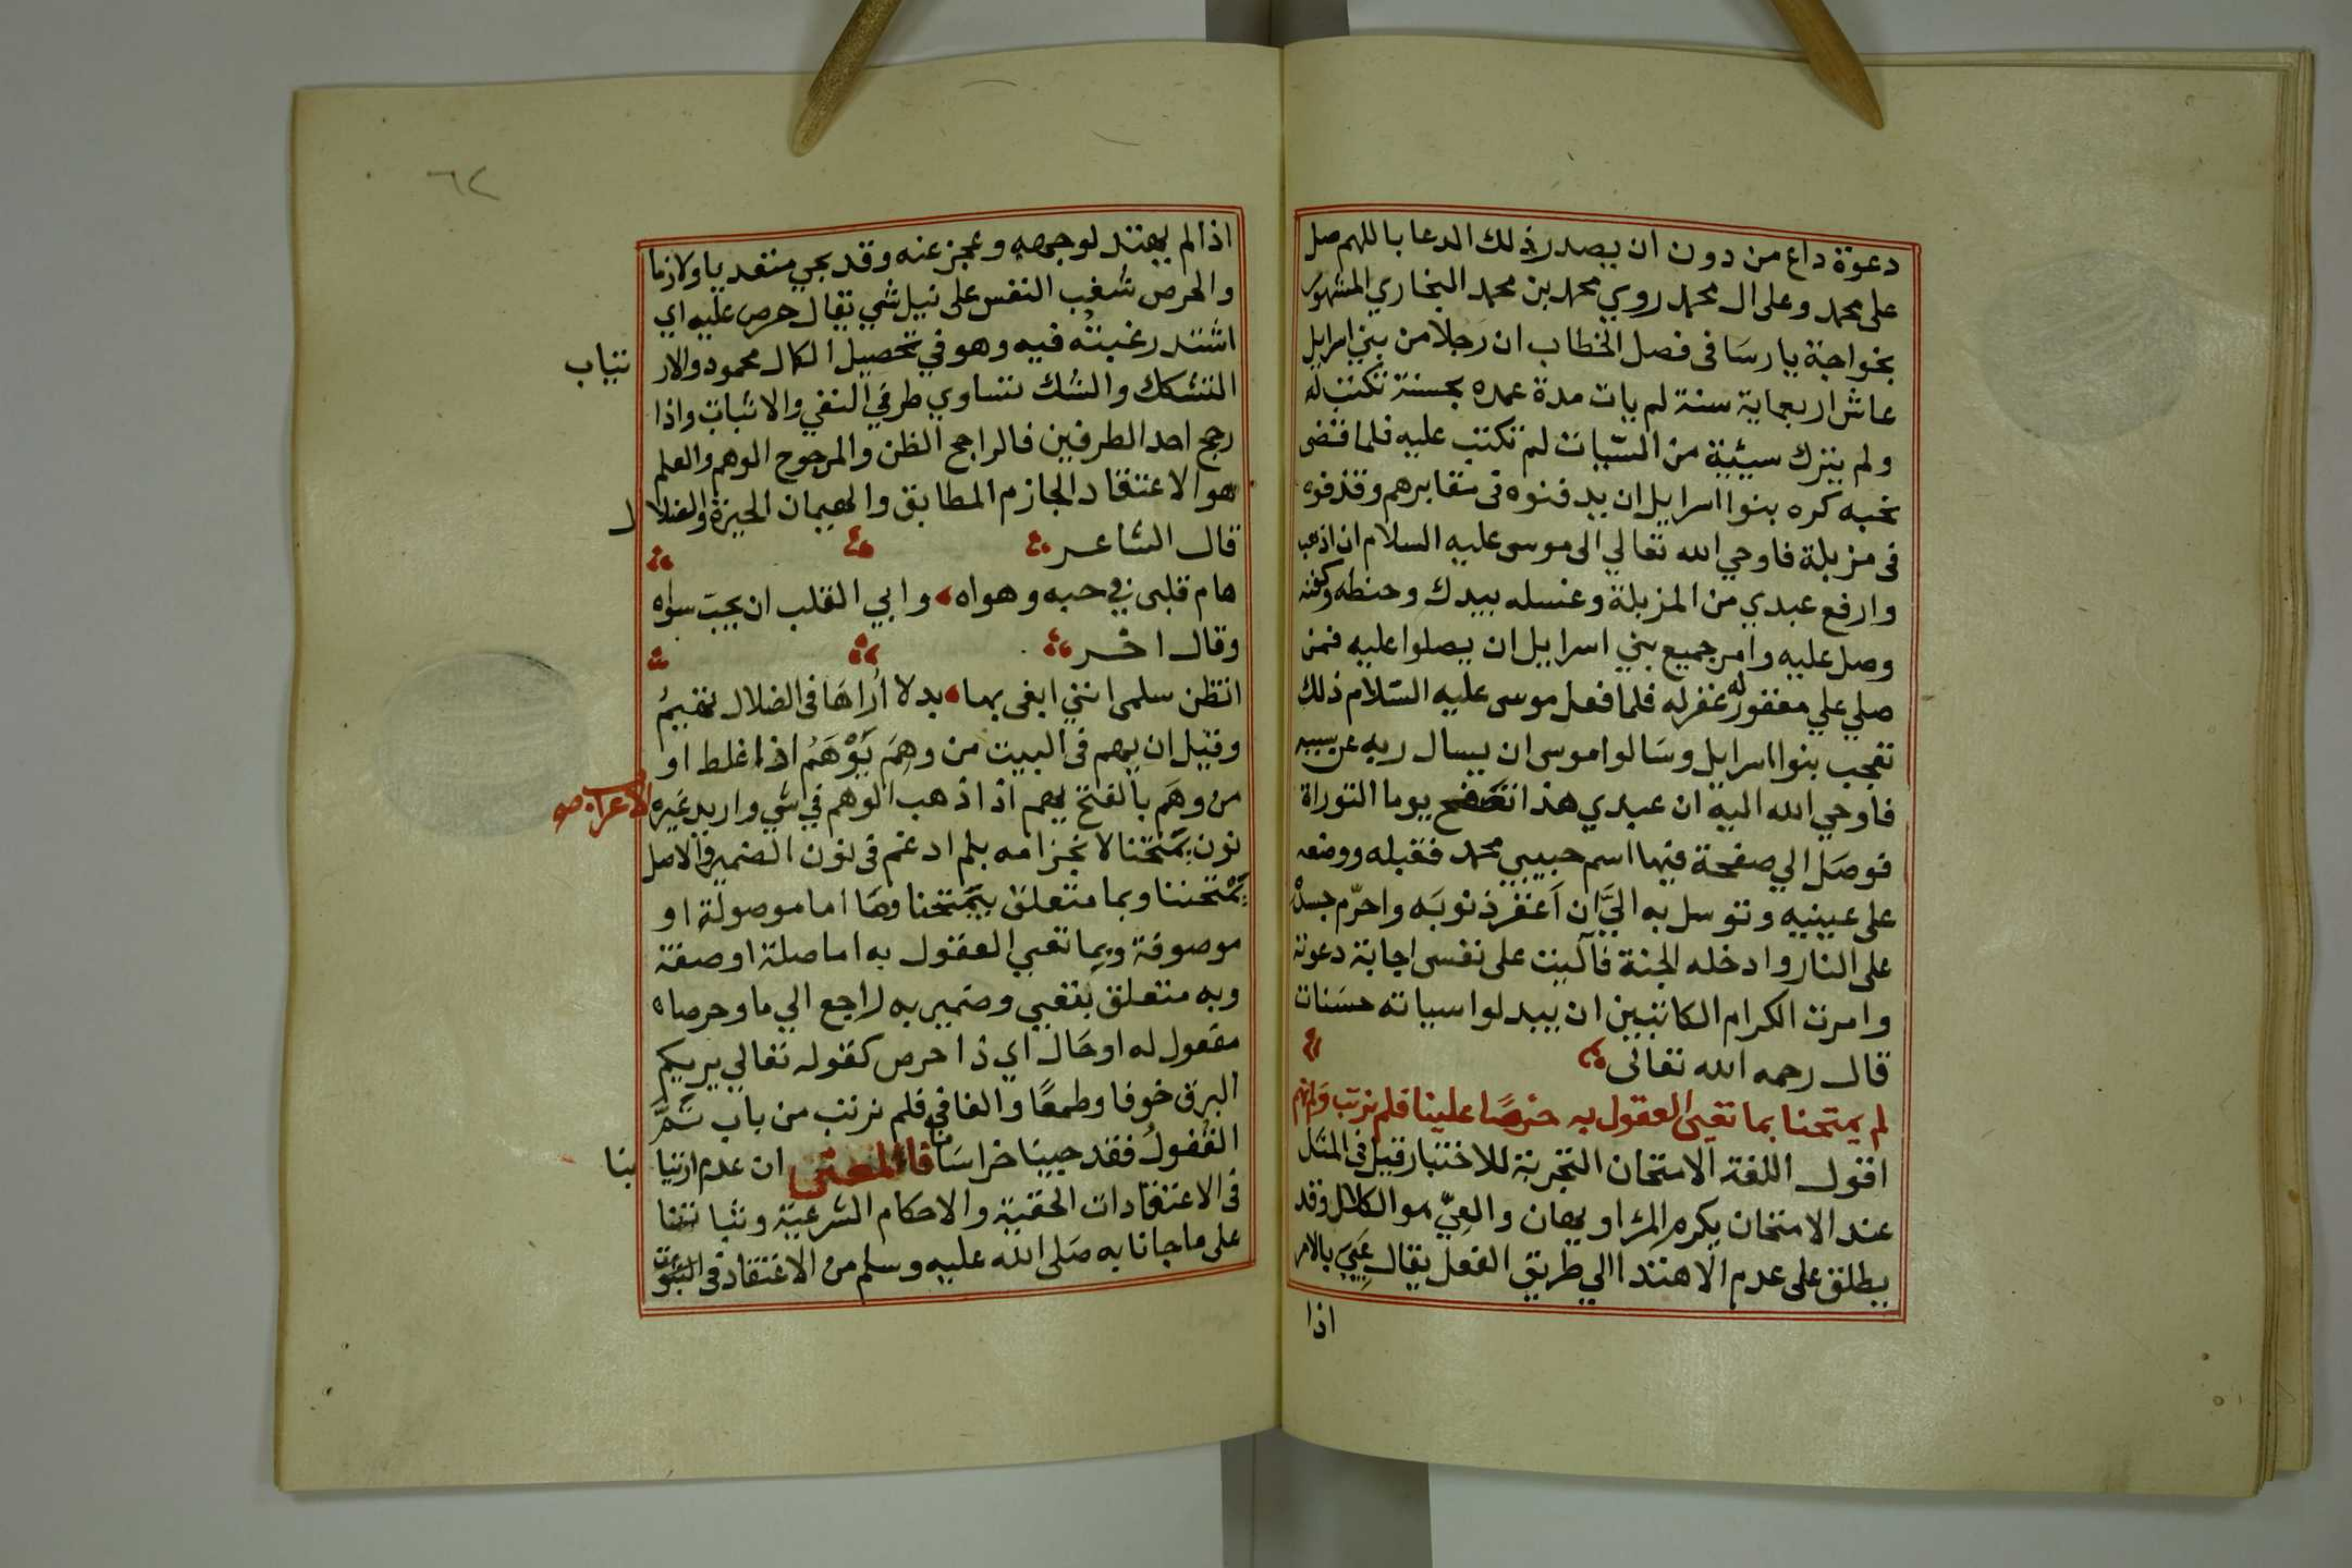 دعوة داع من دون ان يصدر ذلك الدعا باللهم صل
على محمد وعلى ال محمد روي محمد بن محمد البخاري المشهور
بخواجة يارسا فى فصل الخطاب ان رجلا من بني اسرايل
عاش اربعماية سنة لم يات مدة عمره بحسنة تكتب له
ولم يترك سيئية من السيات لم تكتب عليه فلما قضى
نحبه كره بنوا اسرايل ان يدفنوه فى مقابرهم وقذفوه
فى مزبلة فاوحي الله تعالي الى موسى عليه السلام ان اذهب
وارفع عبدي من المزبلة وغسله بيدك وحنطه وكفنه
وصل عليه وامر جميع بني اسرايل ان يصلوا عليه فمن
صلي علي مغفور له غفر له فلما فعل موسى عليه السلام ذلك
تعجب بنوا اسرايل وسالوا موسى ان يسال ربه عن سببه
فاوحي الله اليه ان عبدي هذا تصفح يوما التوراة
فوصل الي صفحة فيها اسم حبيبي محمد فقبله ووضعه
على عينيه وتوسل به اليَّ ان اغفر ذنوبه واحرّم جسده
على النار وادخله الجنة فآليت على نفسى اجابة دعوته
وامرت الكرام الكاتبين ان يبدلوا سياته حسنات
قال رحمه الله تعالى
لم يمتحنا بما تعيى العقول به حرصًا علينا فلم نرتب ولم نهم
اقول اللغة الامتحان التجربة للاختبار قيل فى المثل
عند الامتحان يكرم المرا او يهان والعِيّ هو الكلال وقد
يطلق على عدم الاهتدا الي طريق الفعل يقال عَيِيَ بالامر
اذا
٦٢
اذا لم يهتد لوجهه وعجز عنه وقد يجي متعديا ولازما
والحرص شغب النفس على نيل شي يقال حرص عليه اي
اشتد رغبته فيه وهو في تحصيل الكمال محمود والار تياب
التشكك والشك تساوي طرفي النفي والاثبات واذا
رجح احد الطرفين فالراجح الظن والمرجوح الوهم والعلم
هو الاعتقاد الجازم المطابق والهيمان الحيرة والضلا ل
قال الشاعر
هام قلبى في حبه وهواه وابي القلب ان يحب سواه
وقال اخر
اتظن سلمى اننى ابغى بها بدلا اُراها فى الضلال تهيمُ
وقيل ان يهم فى البيت من وهِمَ يَوْهَمُ اذا غلط او
من وهَم بالفتح يهم اذا ذهب الوهم في شي واريد غيره الاعراب
نون يمتحنا لانجزامه بلم ادغم فى نون الضمير والاصل
يَمْتَحننا وبما متعلق بيمتحنا وما اما موصولة او
موصوفة وبما تعيي العقول به اما صلة او صفة
وبه متعلق بتعيي وضمير به راجع الي ما وحرصا
مفعول له او حال اي ذا حرص كقوله تعالي يريكم
البرق خوفا وطمعًا والفا في فلم نرتب من باب ثمَّ
القفولُ فقد جينا خراسانا فالمعنى ان عدم ارتيا بنا
فى الاعتقادات الحقية والاحكام الشرعية وثباتنا
على ما جانا به صلى الله عليه وسلم من الاعتقاد فى